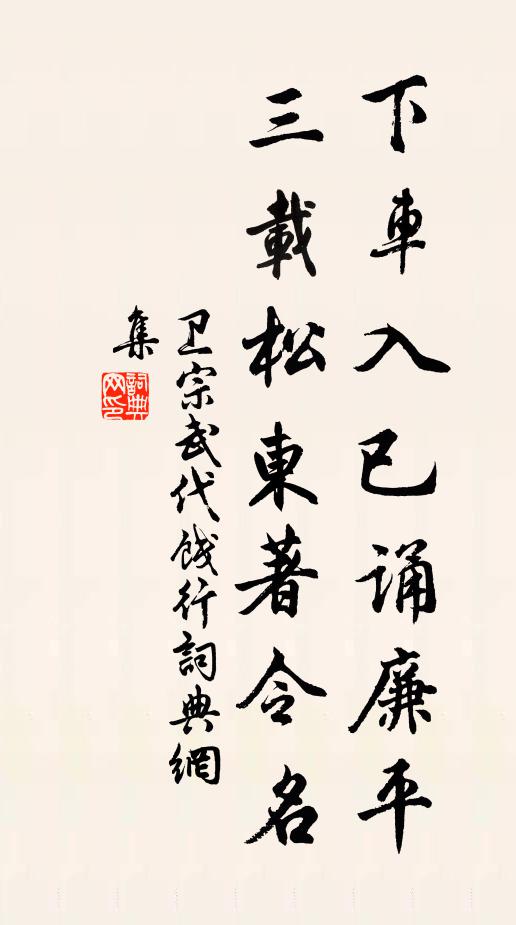 下車入已誦廉平
三載松東著令名
卫宗武代餞行詞典網
集
詞典
网印